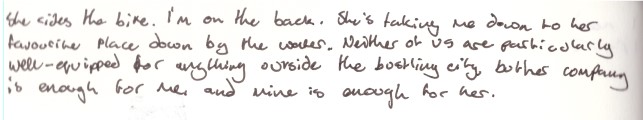 She rides the bike. I'm on the back. She's taking me down to her
favourite place down by the water. Neither of us are particularly
well-equipped for anything outside the bustling city, but her company
is enough for me, and mine is enough for her.